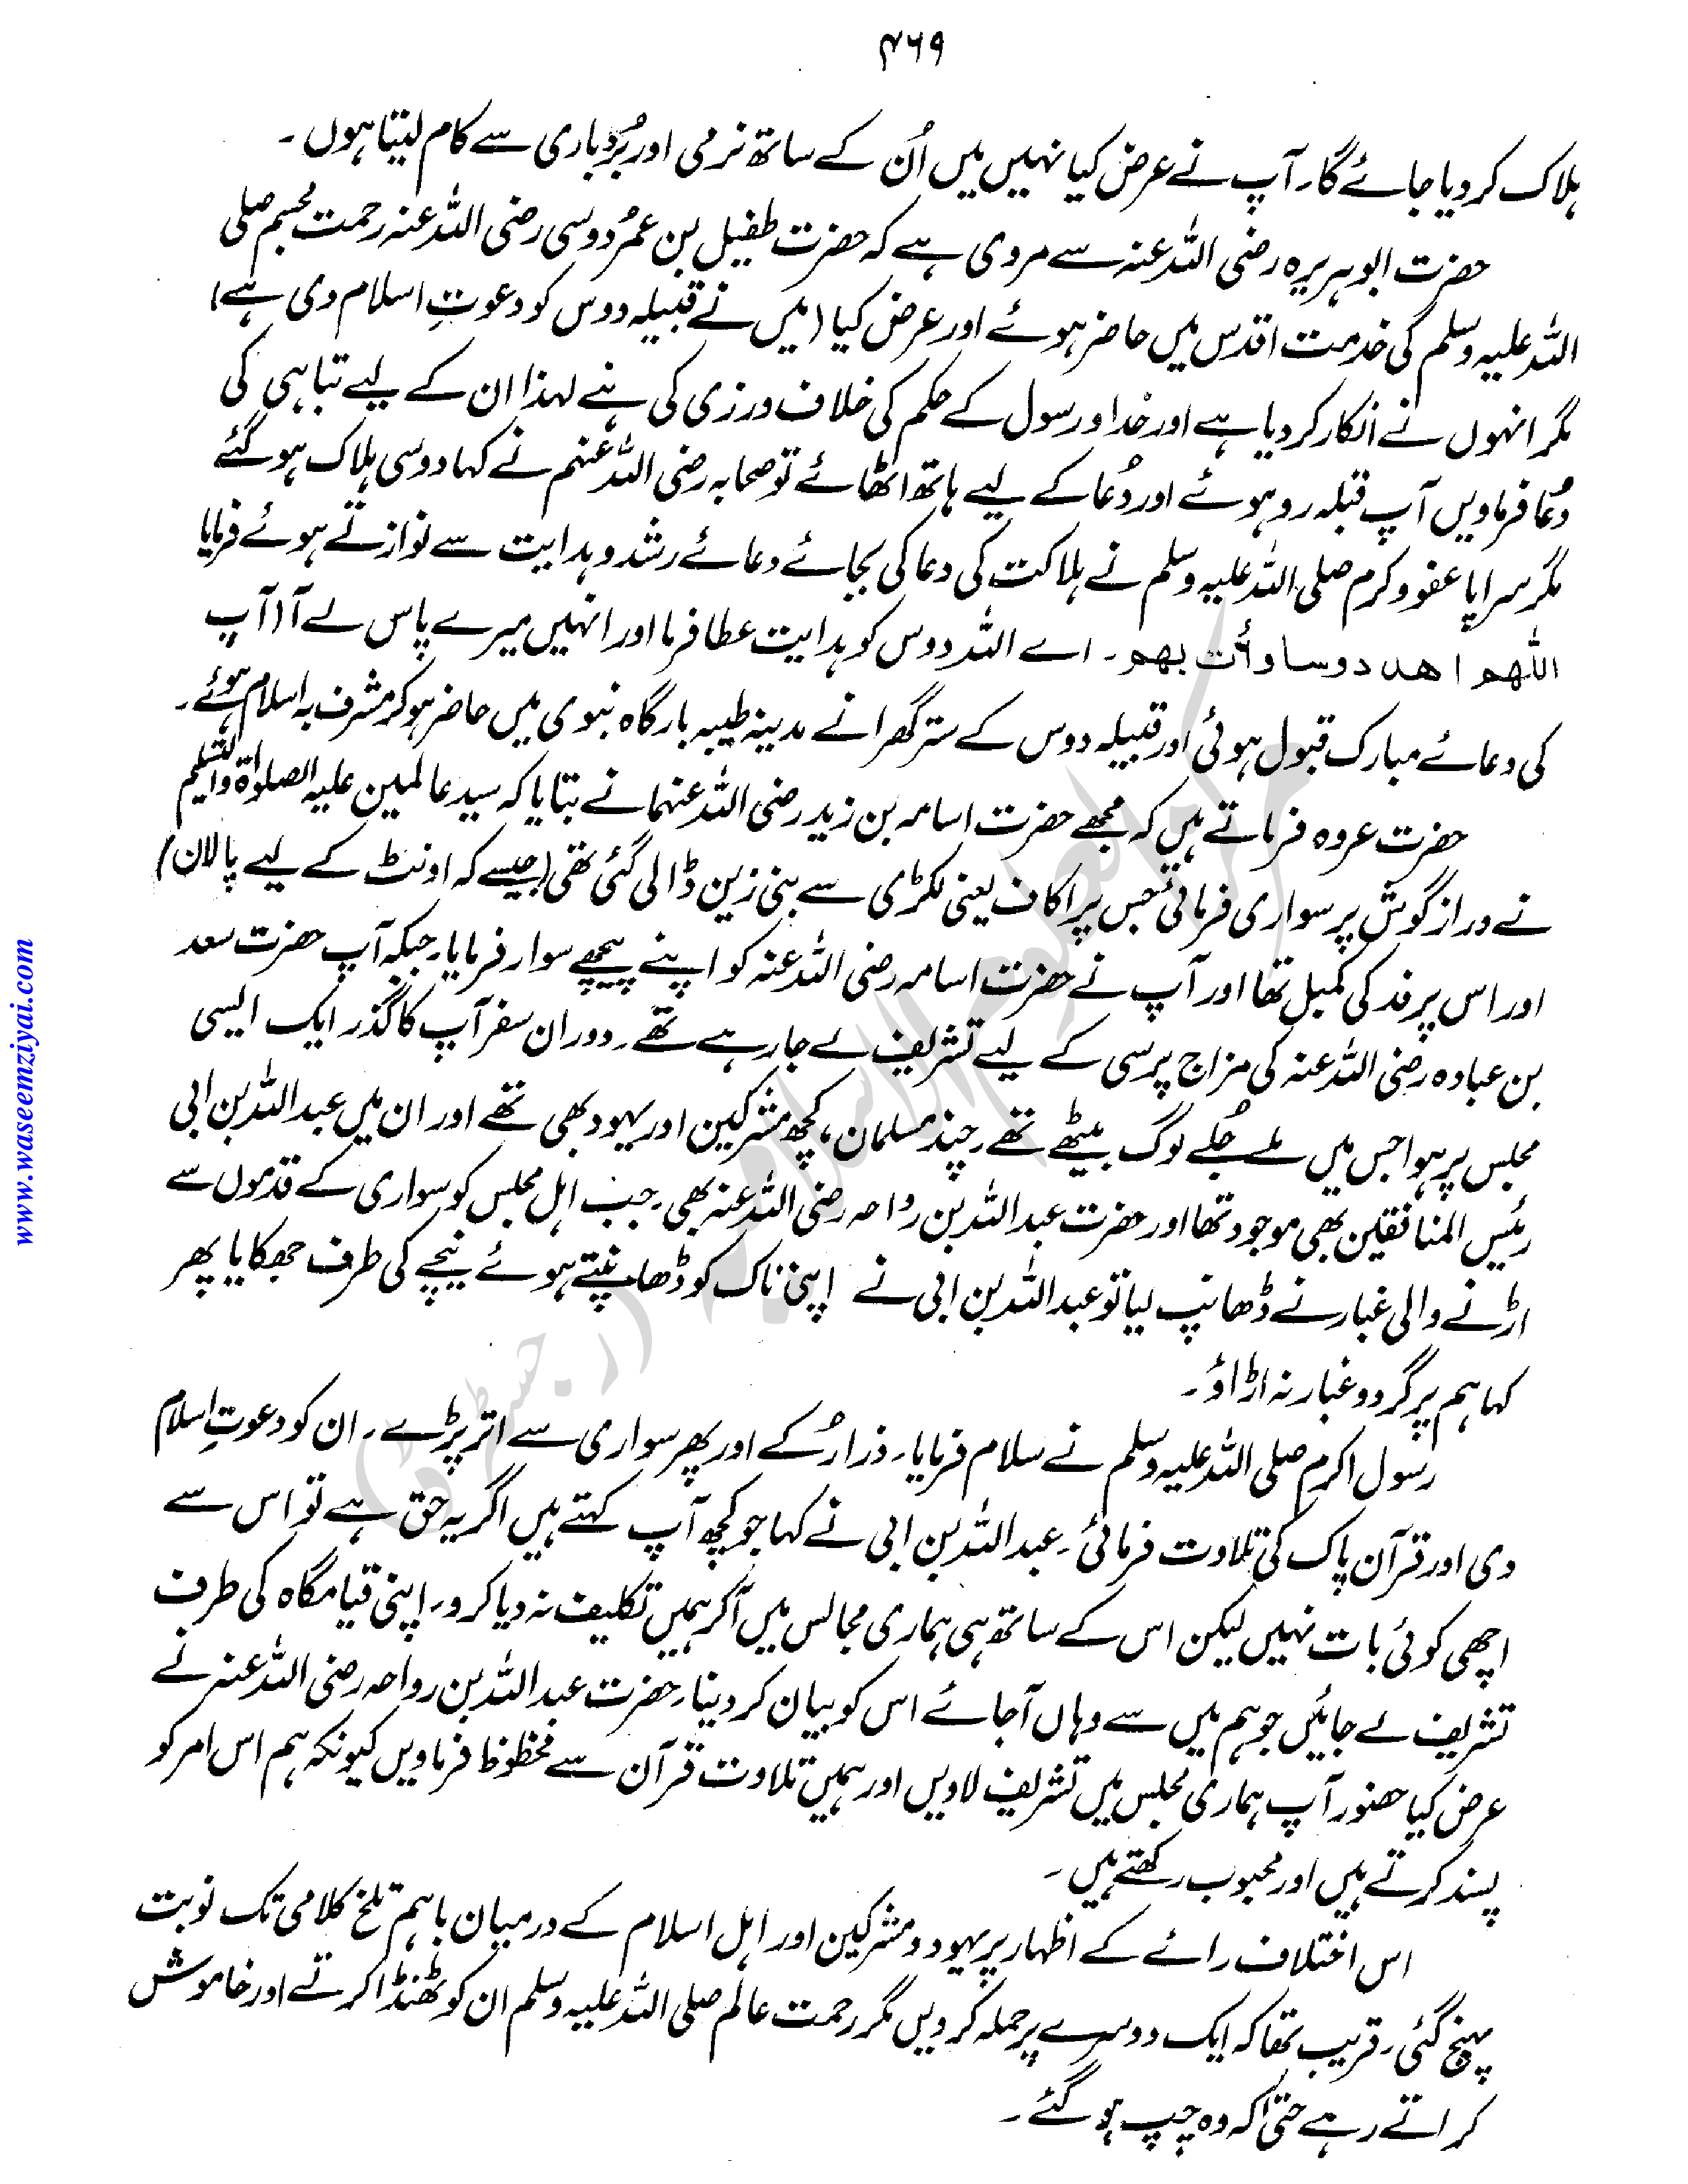 ۴۶۹
ہلاک کر دیا جائے گا۔ آپ نے عرض کیا نہیں میں اُن کے ساتھ نرمی اور بُردباری سے کام لیتا ہوں۔
حضرت ابوہریرہ رضی اللہ عنہ سے مروی ہے کہ حضرت طفیل بن عمرُ دوسی رضی اللہ عنہ رحمت مجسم صلی
اللہ علیہ وسلم کی خدمت اقدس میں حاضر ہوئے اور عرض کیا (میں نے قبیلہ دوس کو دعوتِ اسلام دی ہے)
مگر انہوں نے انکار کر دیا ہے اور خدا و رسول کے حکم کی خلاف ورزی کی ہے لہذا ان کے لیے تباہی کی
دُعا فرماویں آپ قبلہ رو ہوئے اور دُعا کے لیے ہاتھ اٹھائے تو صحابہ رضی اللہ عنہم نے کہا دوسی ہلاک ہو گئے
مگر سراپا عفو و کرم صلی اللہ علیہ وسلم نے ہلاکت کی دعا کی بجائے دعائے رشد و ہدایت سے نوازتے ہوئے فرمایا
اللھم اھد دوسا وأت بھم۔ اے اللہ دوس کو ہدایت عطا فرما اور انہیں میرے پاس لے آ (آپ
کی دعائے مبارک قبول ہوئی اور قبیلہ دوس کے ستر گھرانے مدینہ طیبہ بارگاہ نبوی میں حاضر ہو کر مشرف بہ اسلام ہوئے۔
حضرت عروہ فرماتے ہیں کہ مجھے حضرت اسامہ بن زید رضی اللہ عنہما نے بتایا کہ سید عالمین علیہ الصلوٰۃ والتسلیم
نے دراز گوش پر سواری فرمائی جس پر اکاف یعنی لکڑی سے بنی زین ڈالی گئی تھی (جیسے کہ اونٹ کے لیے پالان)
اور اس پر فدکی کمبل تھا اور آپ نے حضرت اسامہ رضی اللہ عنہ کو اپنے پیچھے سوار فرمایا۔ جبکہ آپ حضرت سعد
بن عبادہ رضی اللہ عنہ کی مزاج پرسی کے لیے تشریف لے جا رہے تھے۔ دوران سفر آپ کا گذر ایک ایسی
مجلس پر ہوا جس میں ملے جُلے لوگ بیٹھے تھے۔ چند مسلمان، کچھ مشرکین اور یہود بھی تھے اور ان میں عبداللہ بن ابی
رئیس المنافقین بھی موجود تھا اور حضرت عبداللہ بن رواحہ رضی اللہ عنہ بھی۔ جب اہل مجلس کو سواری کے قدموں سے
اڑنے والی غبار نے ڈھانپ لیا تو عبداللہ بن ابی نے اپنی ناک کو ڈھانپتے ہوئے نیچے کی طرف جھکایا پھر
کہا ہم پر گرد و غبار نہ اڑاؤ۔
رسول اکرم صلی اللہ علیہ وسلم نے سلام فرمایا۔ ذرا رُکے اور پھر سواری سے اتر پڑے۔ ان کو دعوتِ اسلام
دی اور قرآن پاک کی تلاوت فرمائی۔ عبداللہ بن ابی نے کہا جو کچھ آپ کہتے ہیں اگر یہ حق ہے تو اس سے
اچھی کوئی بات نہیں لیکن اس کے ساتھ ہی ہماری مجالس میں آ کر ہمیں تکلیف نہ دیا کرو۔ اپنی قیامگاہ کی طرف
تشریف لے جائیں جو ہم میں سے وہاں آجائے اس کو بیان کر دینا۔ حضرت عبداللہ بن رواحہ رضی اللہ عنہ نے
عرض کیا حضور آپ ہماری مجلس میں تشریف لاویں اور ہمیں تلاوت قرآن سے محظوظ فرماویں کیونکہ ہم اس امر کو
پسند کرتے ہیں اور محبوب رکھتے ہیں۔
اس اختلاف رائے کے اظہار پر یہود و مشرکین اور اہل اسلام کے درمیان باہم تلخ کلامی تک نوبت
پہنچ گئی۔ قریب تھا کہ ایک دوسرے پر حملہ کر دیں مگر رحمت عالم صلی اللہ علیہ وسلم ان کو ٹھنڈا کرتے اور خاموش
کراتے رہے حتیٰ کہ وہ چپ ہو گئے۔
www.waseemziyai.com